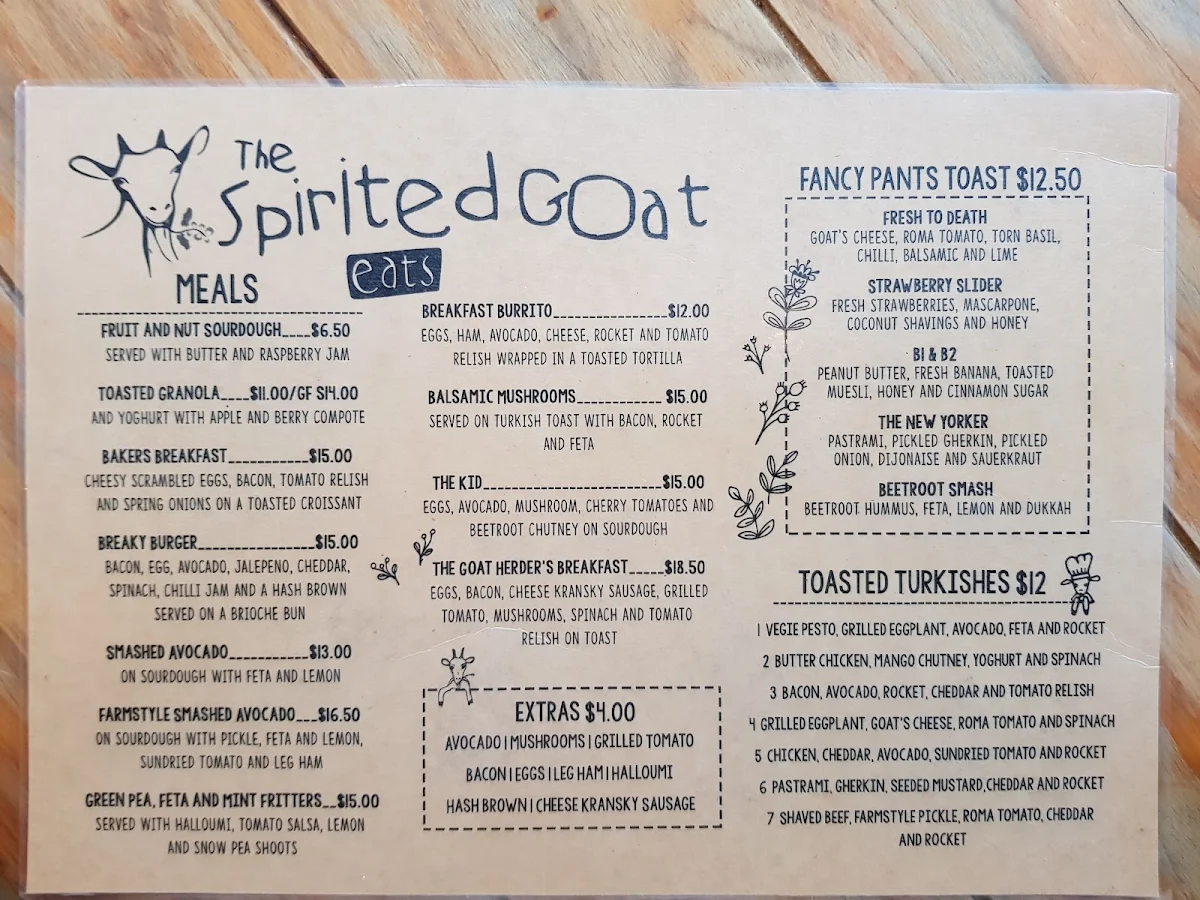 The
Spirited Goat
eats
MEALS
FRUIT AND NUT SOURDOUGH____$6.50
SERVED WITH BUTTER AND RASPBERRY JAM
TOASTED GRANOLA____$11.00/GF $14.00
AND YOGHURT WITH APPLE AND BERRY COMPOTE
BAKERS BREAKFAST___________$15.00
CHEESY SCRAMBLED EGGS, BACON, TOMATO RELISH
AND SPRING ONIONS ON A TOASTED CROISSANT
BREAKY BURGER________________$15.00
BACON, EGG, AVOCADO, JALEPENO, CHEDDAR,
SPINACH, CHILLI JAM AND A HASH BROWN
SERVED ON A BRIOCHE BUN
SMASHED AVOCADO___________$13.00
ON SOURDOUGH WITH FETA AND LEMON
FARMSTYLE SMASHED AVOCADO___$16.50
ON SOURDOUGH WITH PICKLE, FETA AND LEMON,
SUNDRIED TOMATO AND LEG HAM
GREEN PEA, FETA AND MINT FRITTERS__$15.00
SERVED WITH HALLOUMI, TOMATO SALSA, LEMON
AND SNOW PEA SHOOTS
BREAKFAST BURRITO________________$12.00
EGGS, HAM, AVOCADO, CHEESE, ROCKET AND TOMATO
RELISH WRAPPED IN A TOASTED TORTILLA
BALSAMIC MUSHROOMS____________$15.00
SERVED ON TURKISH TOAST WITH BACON, ROCKET
AND FETA
THE KID_____________________________$15.00
EGGS, AVOCADO, MUSHROOM, CHERRY TOMATOES AND
BEETROOT CHUTNEY ON SOURDOUGH
THE GOAT HERDER'S BREAKFAST_____$18.50
EGGS, BACON, CHEESE KRANSKY SAUSAGE, GRILLED
TOMATO, MUSHROOMS, SPINACH AND TOMATO
RELISH ON TOAST
EXTRAS $4.00
AVOCADO | MUSHROOMS | GRILLED TOMATO
BACON | EGGS | LEG HAM | HALLOUMI
HASH BROWN | CHEESE KRANSKY SAUSAGE
FANCY PANTS TOAST $12.50
FRESH TO DEATH
GOAT'S CHEESE, ROMA TOMATO, TORN BASIL,
CHILLI, BALSAMIC AND LIME
STRAWBERRY SLIDER
FRESH STRAWBERRIES, MASCARPONE,
COCONUT SHAVINGS AND HONEY
B1 & B2
PEANUT BUTTER, FRESH BANANA, TOASTED
MUESLI, HONEY AND CINNAMON SUGAR
THE NEW YORKER
PASTRAMI, PICKLED GHERKIN, PICKLED
ONION, DIJONAISE AND SAUERKRAUT
BEETROOT SMASH
BEETROOT HUMMUS, FETA, LEMON AND DUKKAH
TOASTED TURKISHES $12
1 VEGIE PESTO, GRILLED EGGPLANT, AVOCADO, FETA AND ROCKET
2 BUTTER CHICKEN, MANGO CHUTNEY, YOGHURT AND SPINACH
3 BACON, AVOCADO, ROCKET, CHEDDAR AND TOMATO RELISH
4 GRILLED EGGPLANT, GOAT'S CHEESE, ROMA TOMATO AND SPINACH
5 CHICKEN, CHEDDAR, AVOCADO, SUNDRIED TOMATO AND ROCKET
6 PASTRAMI, GHERKIN, SEEDED MUSTARD, CHEDDAR AND ROCKET
7 SHAVED BEEF, FARMSTYLE PICKLE, ROMA TOMATO, CHEDDAR
AND ROCKET